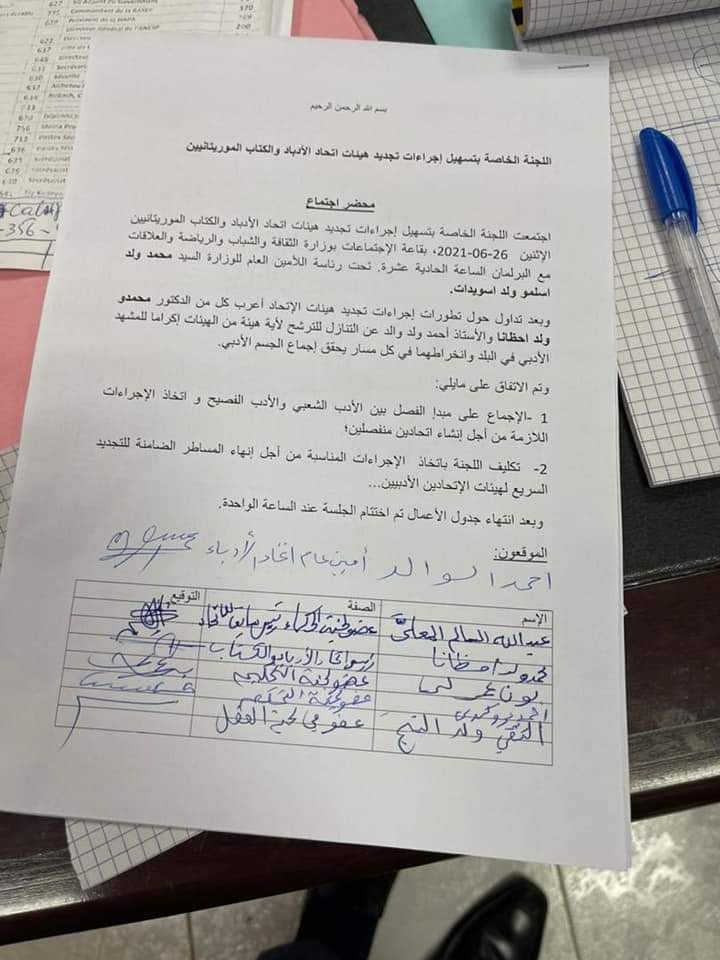 بسم الله الرحمن الرحيم
اللجنة الخاصة بتسهيل إجراءات تجديد هيئات اتحاد الأدباء والكتاب الموريتانيين
محضر اجتماع
اجتمعت اللجنة الخاصة بتسهيل إجراءات تجديد هيئات اتحاد الأدباء والكتاب الموريتانيين
الإثنين 26-06-2021، بقاعة الإجتماعات بوزارة الثقافة والشباب والرياضة والعلاقات
مع البرلمان الساعة الحادية عشرة. تحت رئاسة اللأمين العام للوزارة السيد محمد ولد
اسلمو ولد اسويدات.
وبعد تداول حول تطورات إجراءات تجديد هيئات الإتحاد أعرب كل من الدكتور محمدو
ولد احظانا والأستاذ أحمد ولد والد عن التنازل للترشح لأية هيئة من الهيئات إكراما للمشهد
الأدبي في البلد وانخراطهما في كل مسار يحقق إجماع الجسم الأدبي.
وتم الاتفاق على مايلي:
1 -الإجماع على مبدإ الفصل بين الأدب الشعبي والأدب الفصيح و اتخاذ الإجراءات
اللازمة من أجل إنشاء اتحادين منفصلين؛
2- تكليف اللجنة باتخاذ الإجراءات المناسبة من أجل إنهاء المساطر الضامنة للتجديد
السريع لهيئات الإتحادين الأدبيين...
وبعد انتهاء جدول الأعمال تم اختتام الجلسة عند الساعة الواحدة.
الموقعون:
احمد الوالد أمين عام اتحاد الأدباء
الإسم الصفة التوقيع
عبد الله السالم المعلى عضو لجنة الحكماء رئيس سابق للاتحاد
محمدو ولد احظانا رئيس اتحاد الأدباء والكتاب
عضو لجنة التحكيم
عضو لجنة التحكيم
التقي ولد الشيخ عضو في لجنة